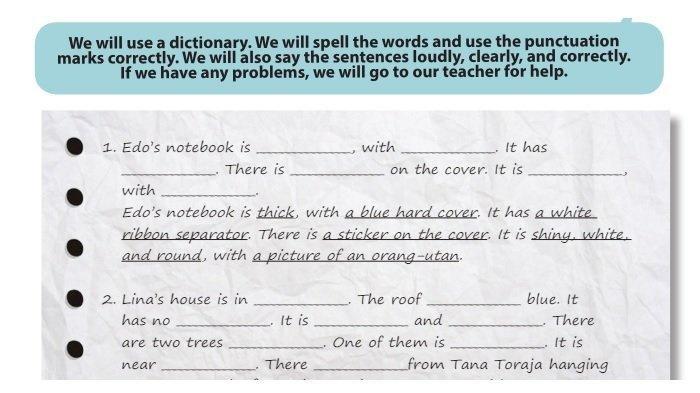 We will use a dictionary. We will spell the words and use the punctuation
marks correctly. We will also say the sentences loudly, clearly, and correctly.
If we have any problems, we will go to our teacher for help.
1. Edo's notebook is ____________, with ____________. It has
____________. There is ____________ on the cover. It is ____________,
with ____________.
Edo's notebook is thick, with a blue hard cover. It has a white
ribbon separator. There is a sticker on the cover. It is shiny, white,
and round, with a picture of an orang-utan.
2. Lina's house is in ____________. The roof ____________ blue. It
has no ____________. It is ____________ and ____________. There
are two trees ____________. One of them is ____________. It is
near ____________. There ____________from Tana Toraja hanging